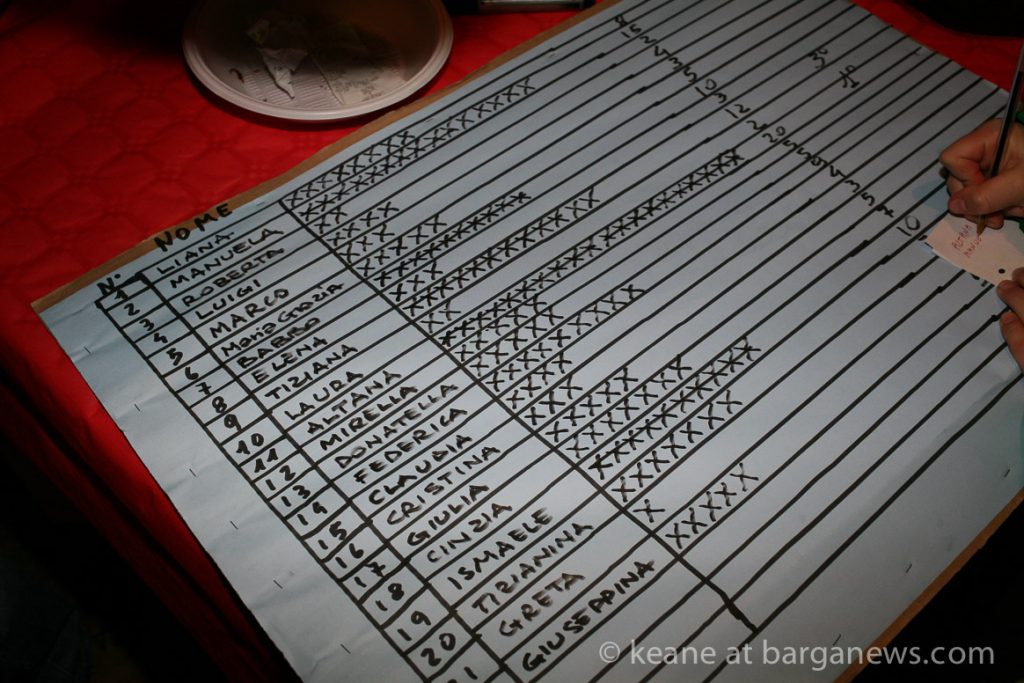 Nº NOME
1 LIANA
2 MANUELA
3 ROBERTA
4 LUIGI
5 MARCO
6 Maria Grazia
7 BABBO
8 ELENA
9 TIZIANA
10 LAURA
11 ALTANA
12 MIRELLA
13 DONATELLA
14 FEDERICA
15 CLAUDIA
16 CRISTINA
17 GIULIA
18 CINZIA
19 ISMAELE
20 TIZIANINA
GRETA
GIUSEPPINA
© keane at barganews.com